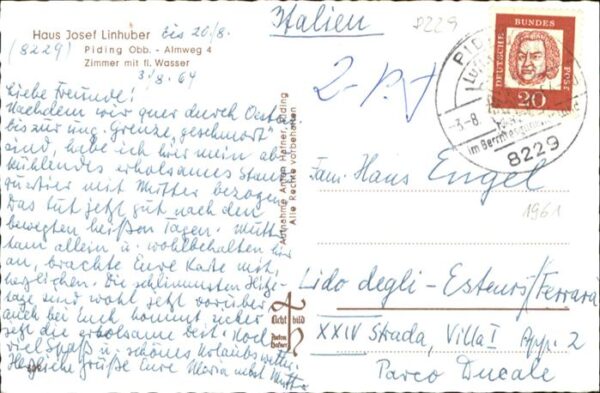 Haus Josef Linhuber bis 20/8.
(8229) Piding Obb. - Almweg 4
Zimmer mit fl. Wasser
3/8. 64
Liebe Freunde!
Nachdem wir quer durch Oesterr.
bis zur ung. Grenze „geschmort"
sind, habe ich hier mein ab-
kühlendes erholsames Stand-
quartier mit Mutter bezogen.
Das tut jetzt gut nach den
bewegten heißen Tagen. Mutti
kam allein u. wohlbehalten hier
an, brachte Eure Karte mit,
herzlichen. Die schlimmsten Hitze-
tage sind wohl jetzt vorüber,
auch bei Euch kommt
jetzt die erholsame Zeit. Noch
viel Spaß u. schönes Urlaubswetter.
Herzliche Grüße Eure Maria nebst Mutti
Aufnahme Anton Hafner, Piding
Alle Rechte vorbehalten
Licht bild
Anton
Hafner
Italien
8229
DEUTSCHE BUNDESPOST
20
PID
-3-8.
im Berchtesgadener
8229
Fam. Hans Engel
1961
Lido degli-Estensi/Ferrara
XXIV Strada, Villa I App. 2
Parco Ducale